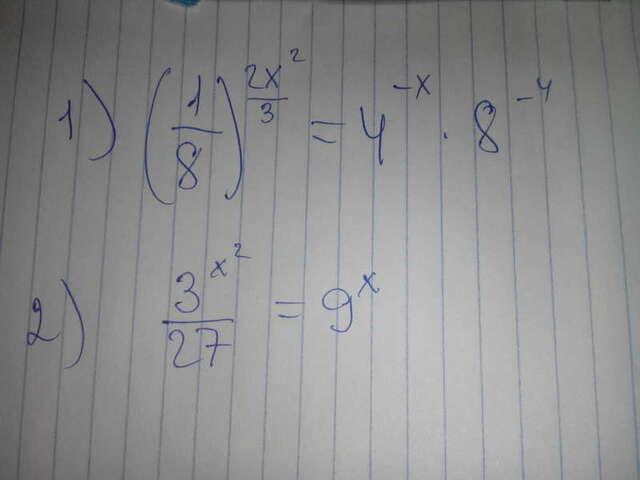 1) (1/8)^(2x²/3) = 4^(-x) · 8^(-4)
2) 3^(x²)/27 = 9^x